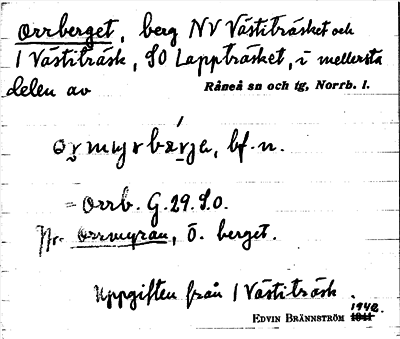 Orrberget, berg NV Västiträsket och
1 Västiträsk, SO Lappträsket, i mellersta
delen av Råneå sn och tg, Norrb. l.
ormyrbærje, bf. n.
= Orrb. G.29.S.O.
Jfr. Orrmyran, Ö. berget.
Uppgiften från 1 Västiträsk.
1942.
EDVIN BRÄNNSTRÖM 1941